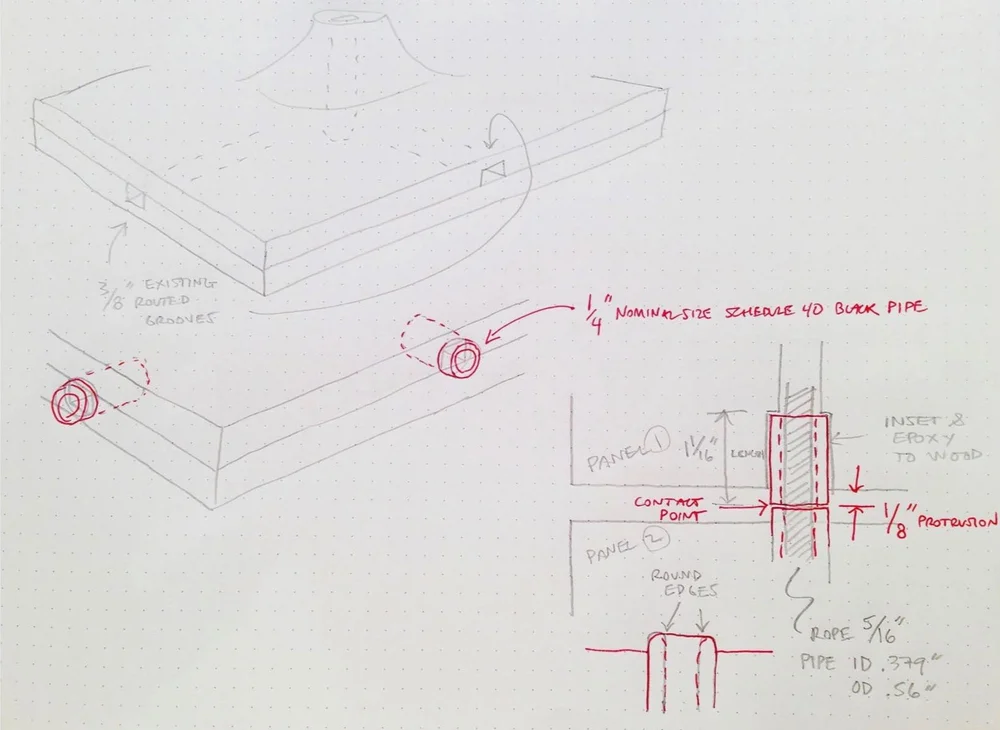 3/8" EXISTING
ROUTED
GROOVES
1/4" NOMINAL SIZE SCHEDULE 40 BLACK PIPE
PANEL 1
1 1/16"
LENGTH
INSET &
EPOXY
TO WOOD
CONTACT
POINT
1/8" PROTRUSION
PANEL 2
ROUND
EDGES
ROPE 5/16"
PIPE ID .379"
OD .56"